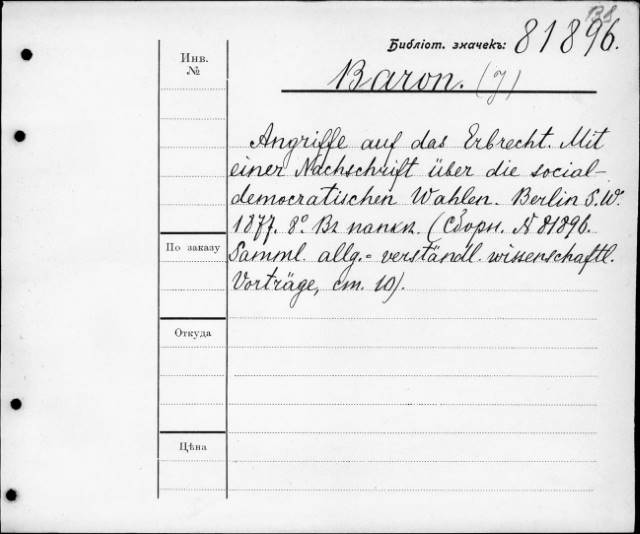 Библіот. значекъ: 81896.
Инв.
№
Baron. (J)
Angriffe auf das Erbrecht. Mit
einer Nachschrift über die social-
democratischen Wahlen. Berlin S.W.
1877. 8°. Въ папкѣ. (Сборн. № 81896.
Samml. allg.= verständl. wissenschaftl.
Vorträge, ст. 10).
По заказу
Откуда
Цѣна